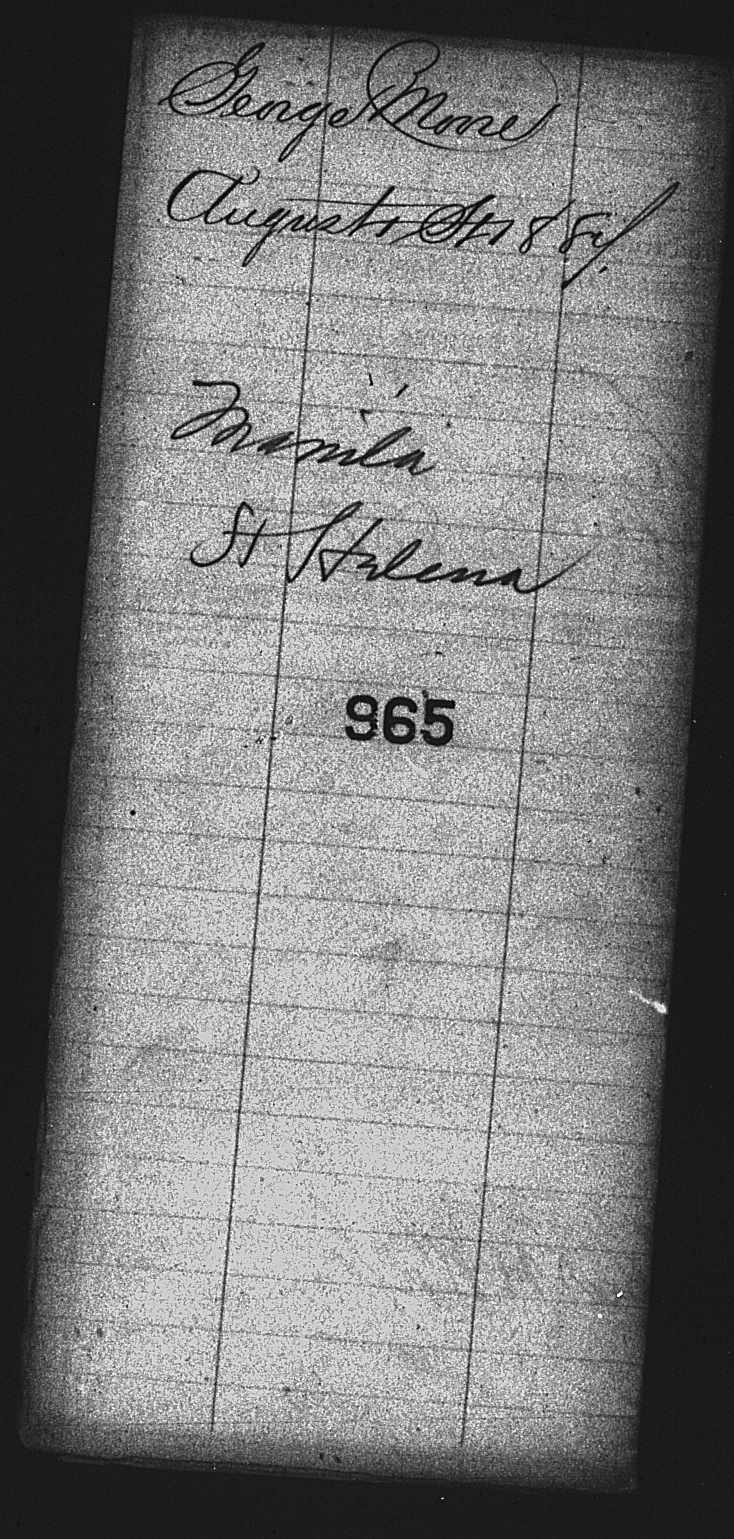 George Moore
August
Manila
St Helena
965